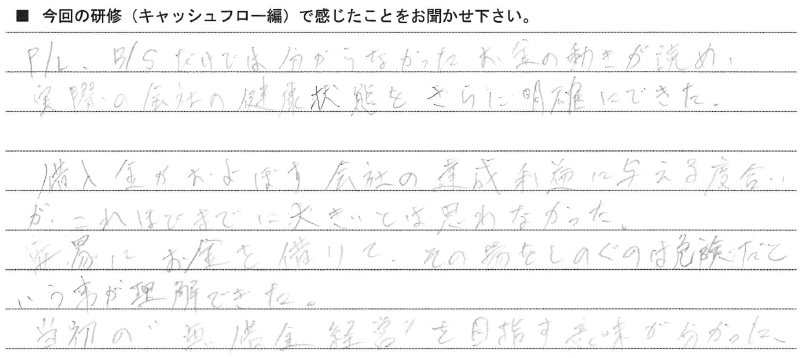 ■ 今回の研修（キャッシュフロー編）で感じたことをお聞かせ下さい。
P/L、B/Sだけでは分からなかったお金の動きが読め、
実際の会社の健康状態をさらに明確にできた。
借入金がおよぼす会社の達成利益に与える度合い
が、これほどまでに大きいとは思わなかった。
安易にお金を借りて、その場をしのぐのは危険だと
いう事が理解できた。
当初の"無借金経営"を目指す意味が分かった。